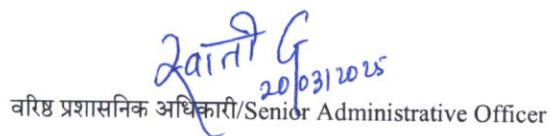 स्वाती G
20/03/2025
वरिष्ठ प्रशासनिक अधिकारी/Senior Administrative Officer